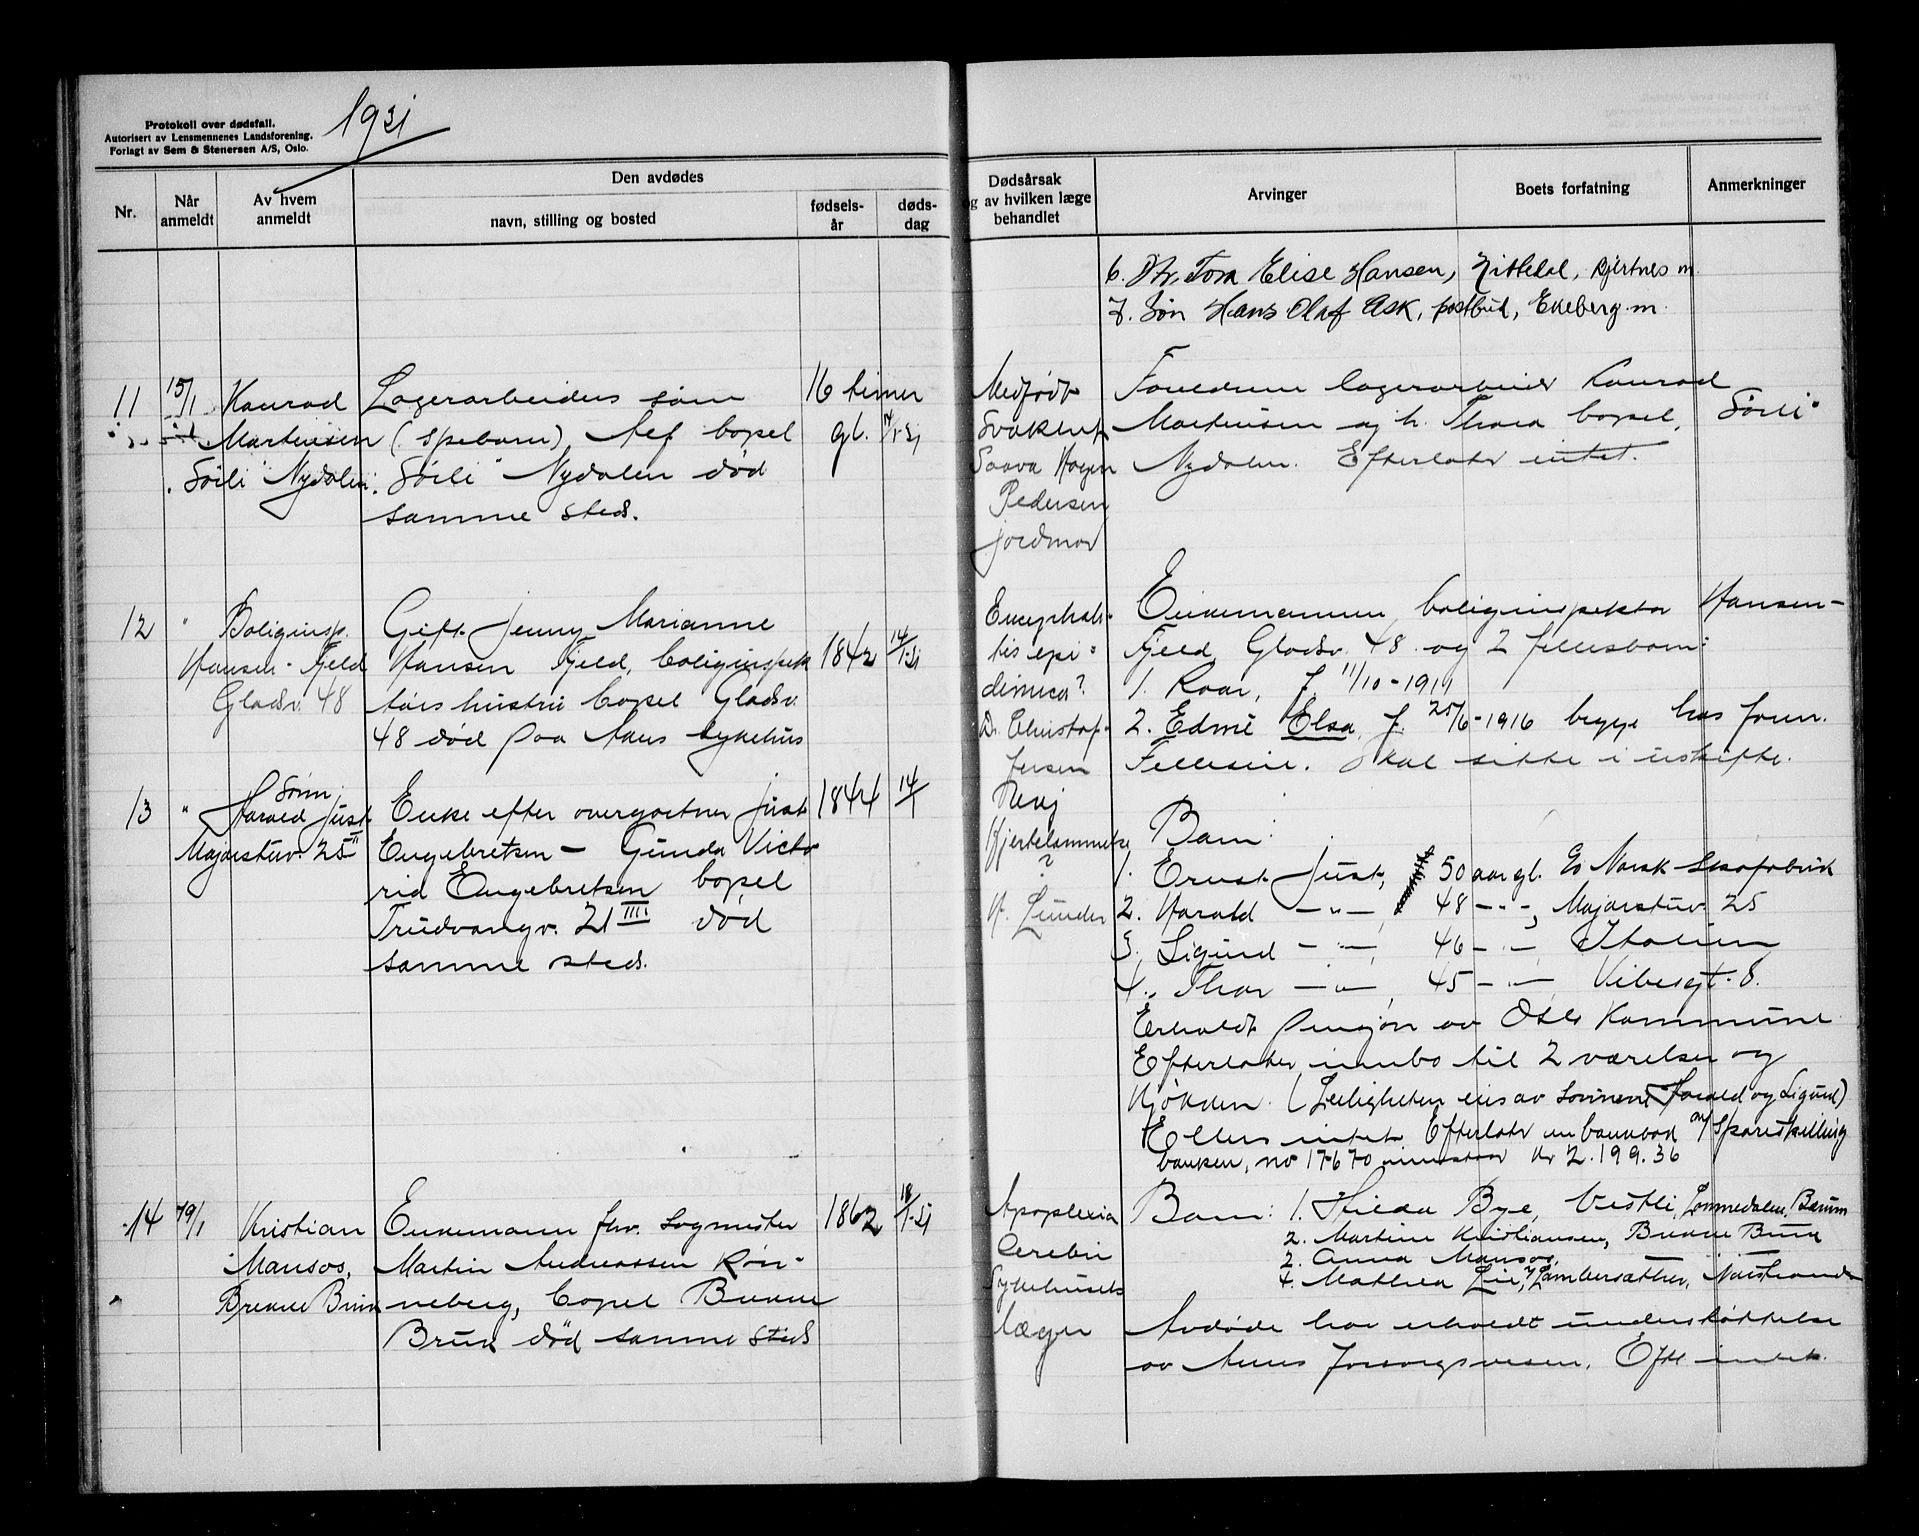 Protokoll over dødsfall.
Autorisert av Lensmennenes Landsforening.
Forlagt av Sem & Stenersen A/S, Oslo.
1931
Nr.
Når
anmeldt
Av hvem
anmeldt
Den avdødes
navn, stilling og bosted
fødsels-
år
døds-
dag
Dødsårsak
og av hvilken læge
behandlet
Arvinger
Boets forfatning
Anmerkninger
6. Dtr. Tora Elise Hansen, Nittedal, Kjertnes m.
7. Søn Hans Olaf Ask, postbud, Ekeberg m.
11
15/1
Konrad
Martinsen
"Sørli" Nydalen
Lagerarbeiders søn
(spebarn) Aof bopel
"Sørli" Nydalen død
samme sted.
16 timer
gl.
14/1-31
Medfødt
svakhet
Hagen
Pedersen
jordmor
Foreldrene lagerarbeider Konrad
Martinsen og h. Thora bopel, "Sørli"
Nydalen. Efterlater intet.
12
"
Boliginsp.
Hansen-Fjeld
Gladsv. 48
Gift Jenny Marianne
Hansen Fjeld, boliginspek
tørs hustru bopel Gladsv.
48 død paa Akers sykehus
14/1-31
Encephali-
tis epi-
demica?
Dr. Christof-
fersen
Enkemannen, boliginspektør Hansen-
Fjeld Gladsv. 48 og 2 fellesbarn:
1. Roar, f. 11/10-1911
2. Edmé Elsa f. 25/6-1916 begge hos foren.
Felleseie. Skal sitte i uskifte.
13
"
Sønn
Harald Just
Majorstuv. 25 II
Enke efter overgartner Just
Engebretsen - Gunda Victo
ria Engebretsen bopel
Trudvangv. 21 III død
samme sted.
1844
14/1
Hjertelammelse
?
H. Lunder
Barn:
1. Ernst Just, 50 aar gl. Norsk Skofabrik
2. Harald - " -, 48 - " -, Majorstuv. 25
3. Sigurd - " -, 46 - " - Italien
4. Thor - " -, 45 - " - Vibesgt. 8.
Erholdt pensjon av Oslo Kommune
Efterlater innbo til 2 værelser og
Kjøkken. (Leiligheten eies av sønnene Harald og Sigurd)
Ellers intet. Efterlater en bankbok m/ Spareskilling
banken, no 17670 innestaar Kr 2.199.36
14
19/1
Kristian
Mansos,
Brenne Bruk
Enkemann fhv. Sagmester
Martin Andreassen Røn-
neberg, bopel Brenne
Bruk død samme sted
1862
18/1-31
Apoplexia
Cerebri
Sykehusets
læger
Barn: 1. Hilda Bye, Vestli, Lommedalen, Bærum
2. Martine Kristiansen, Brenne Bruk
3. Anna Mansos,
4. Mathea Lie, Lambersæther, Nordstrand
Avdøde har erholdt understøttelse
av Akers forsorgsvesen. Eftl intet.